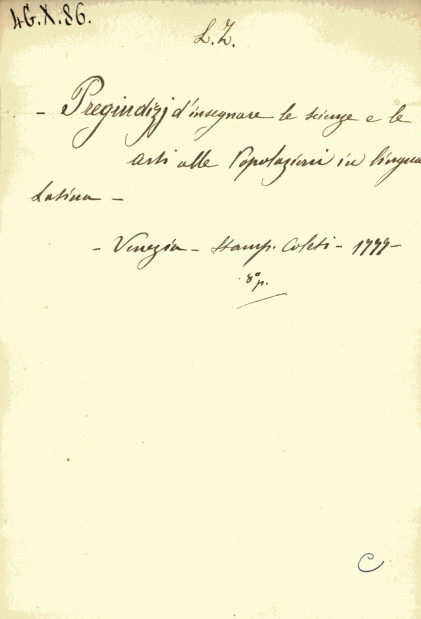 46.X.86.
L.Z.
- Pregiudizj d'insegnare le scienze e le
arti alle Popolazioni in lingua
Latina -
- Venezia - Stamp. Coleti - 1777 -
8° p.
C